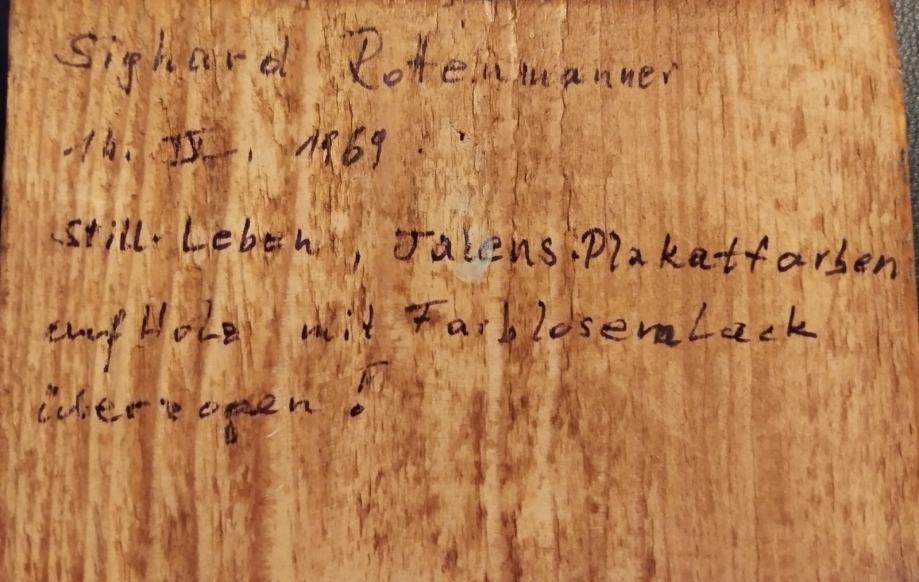 Sighard Rottenmanner
14. IX. 1969
Still-Leben, Talens Plakatfarben
auf Holz mit Farblosem Lack
überzogen!